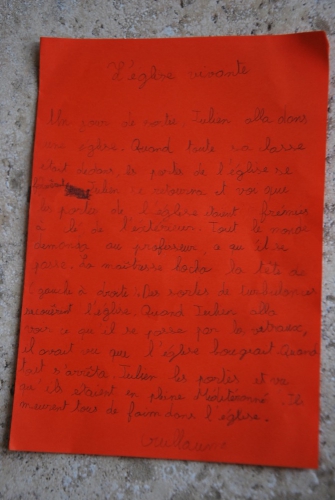 L'église vivante
Un jour de sortie, Julien alla dans
une église. Quand toute sa classe
était dedans, la porte de l'église se
Julien se retourna et vos que
les portes de l'église étaient fermées
à clé de l'extérieur. Tout le monde
demanda au professeur, ce qu'il se
passe. La maîtresse hocha la tête de
gauche à droite. Des sortes de
l'église. Quand Julien alla
voir ce qu'il se passe par la
il avait vu que l'église bougeait. Quand
tout s'arrêta, Julien les portes et vu
qu'ils étaient en pleine Méditerranné. Ils
meurent tous de faim dans l'église.
Guillaume